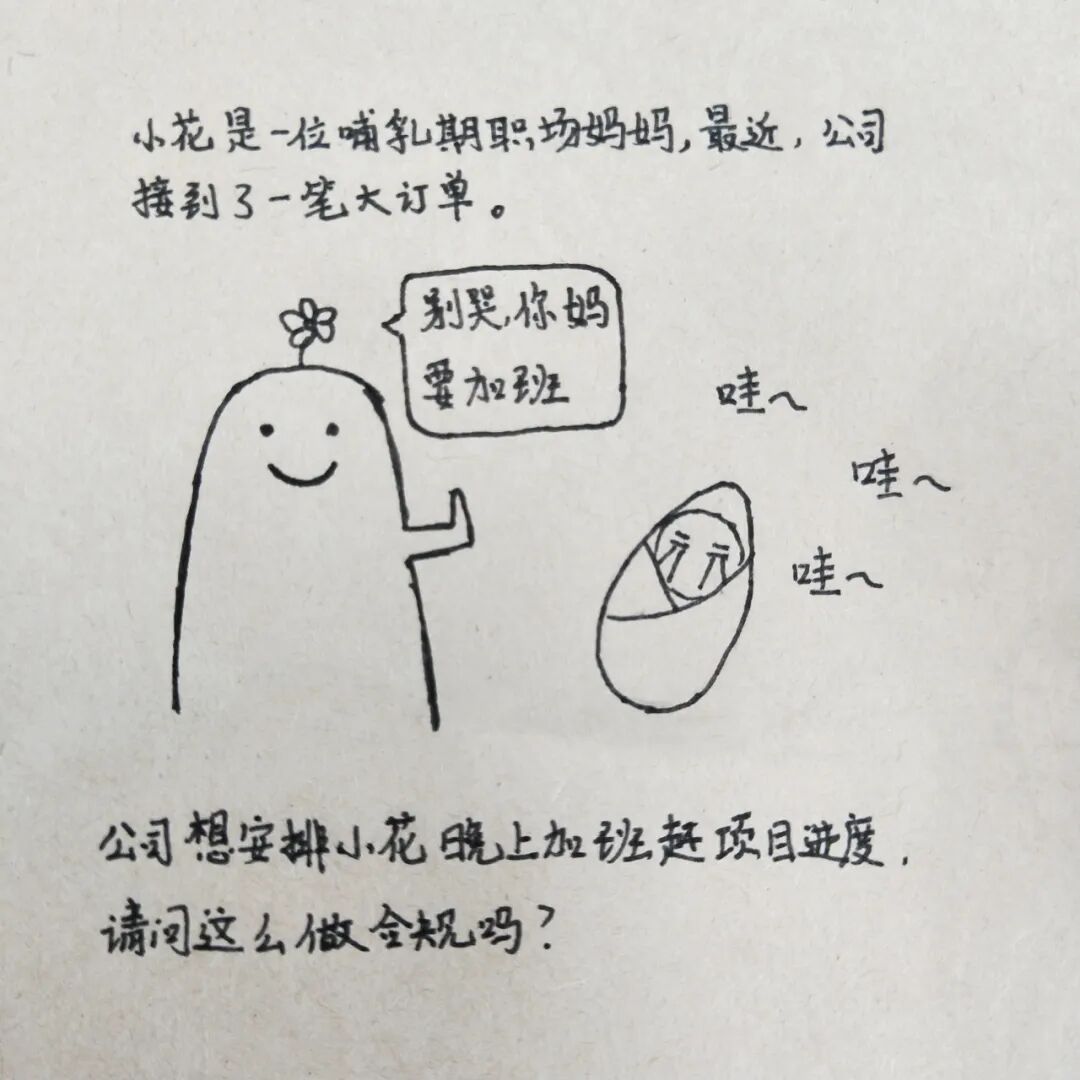 小花是一位哺乳期职场妈妈,最近,公司
接到了一笔大订单。
别哭,你妈
要加班
哇~
哇~
哇~
公司想安排小花晚上加班赶项目进度,
请问这么做合规吗?